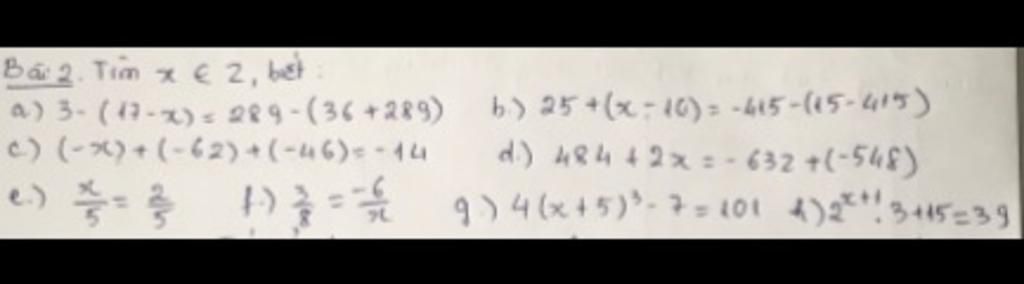 Bài 2. Tìm x ∈ Z, biết :
a) 3 - (17 - x) = 289 - (36 + 289) b.) 25 + (x - 10) = -415 - (15 - 415)
c.) (-x) + (-62) + (-46) = -14 d.) 484 + 2x = -632 + (-548)
e.) x/5 = 2/5 f.) 3/8 = -6/x g.) 4(x + 5)³ - 7 = 101 h) 2^(x+1) . 3 + 15 = 39